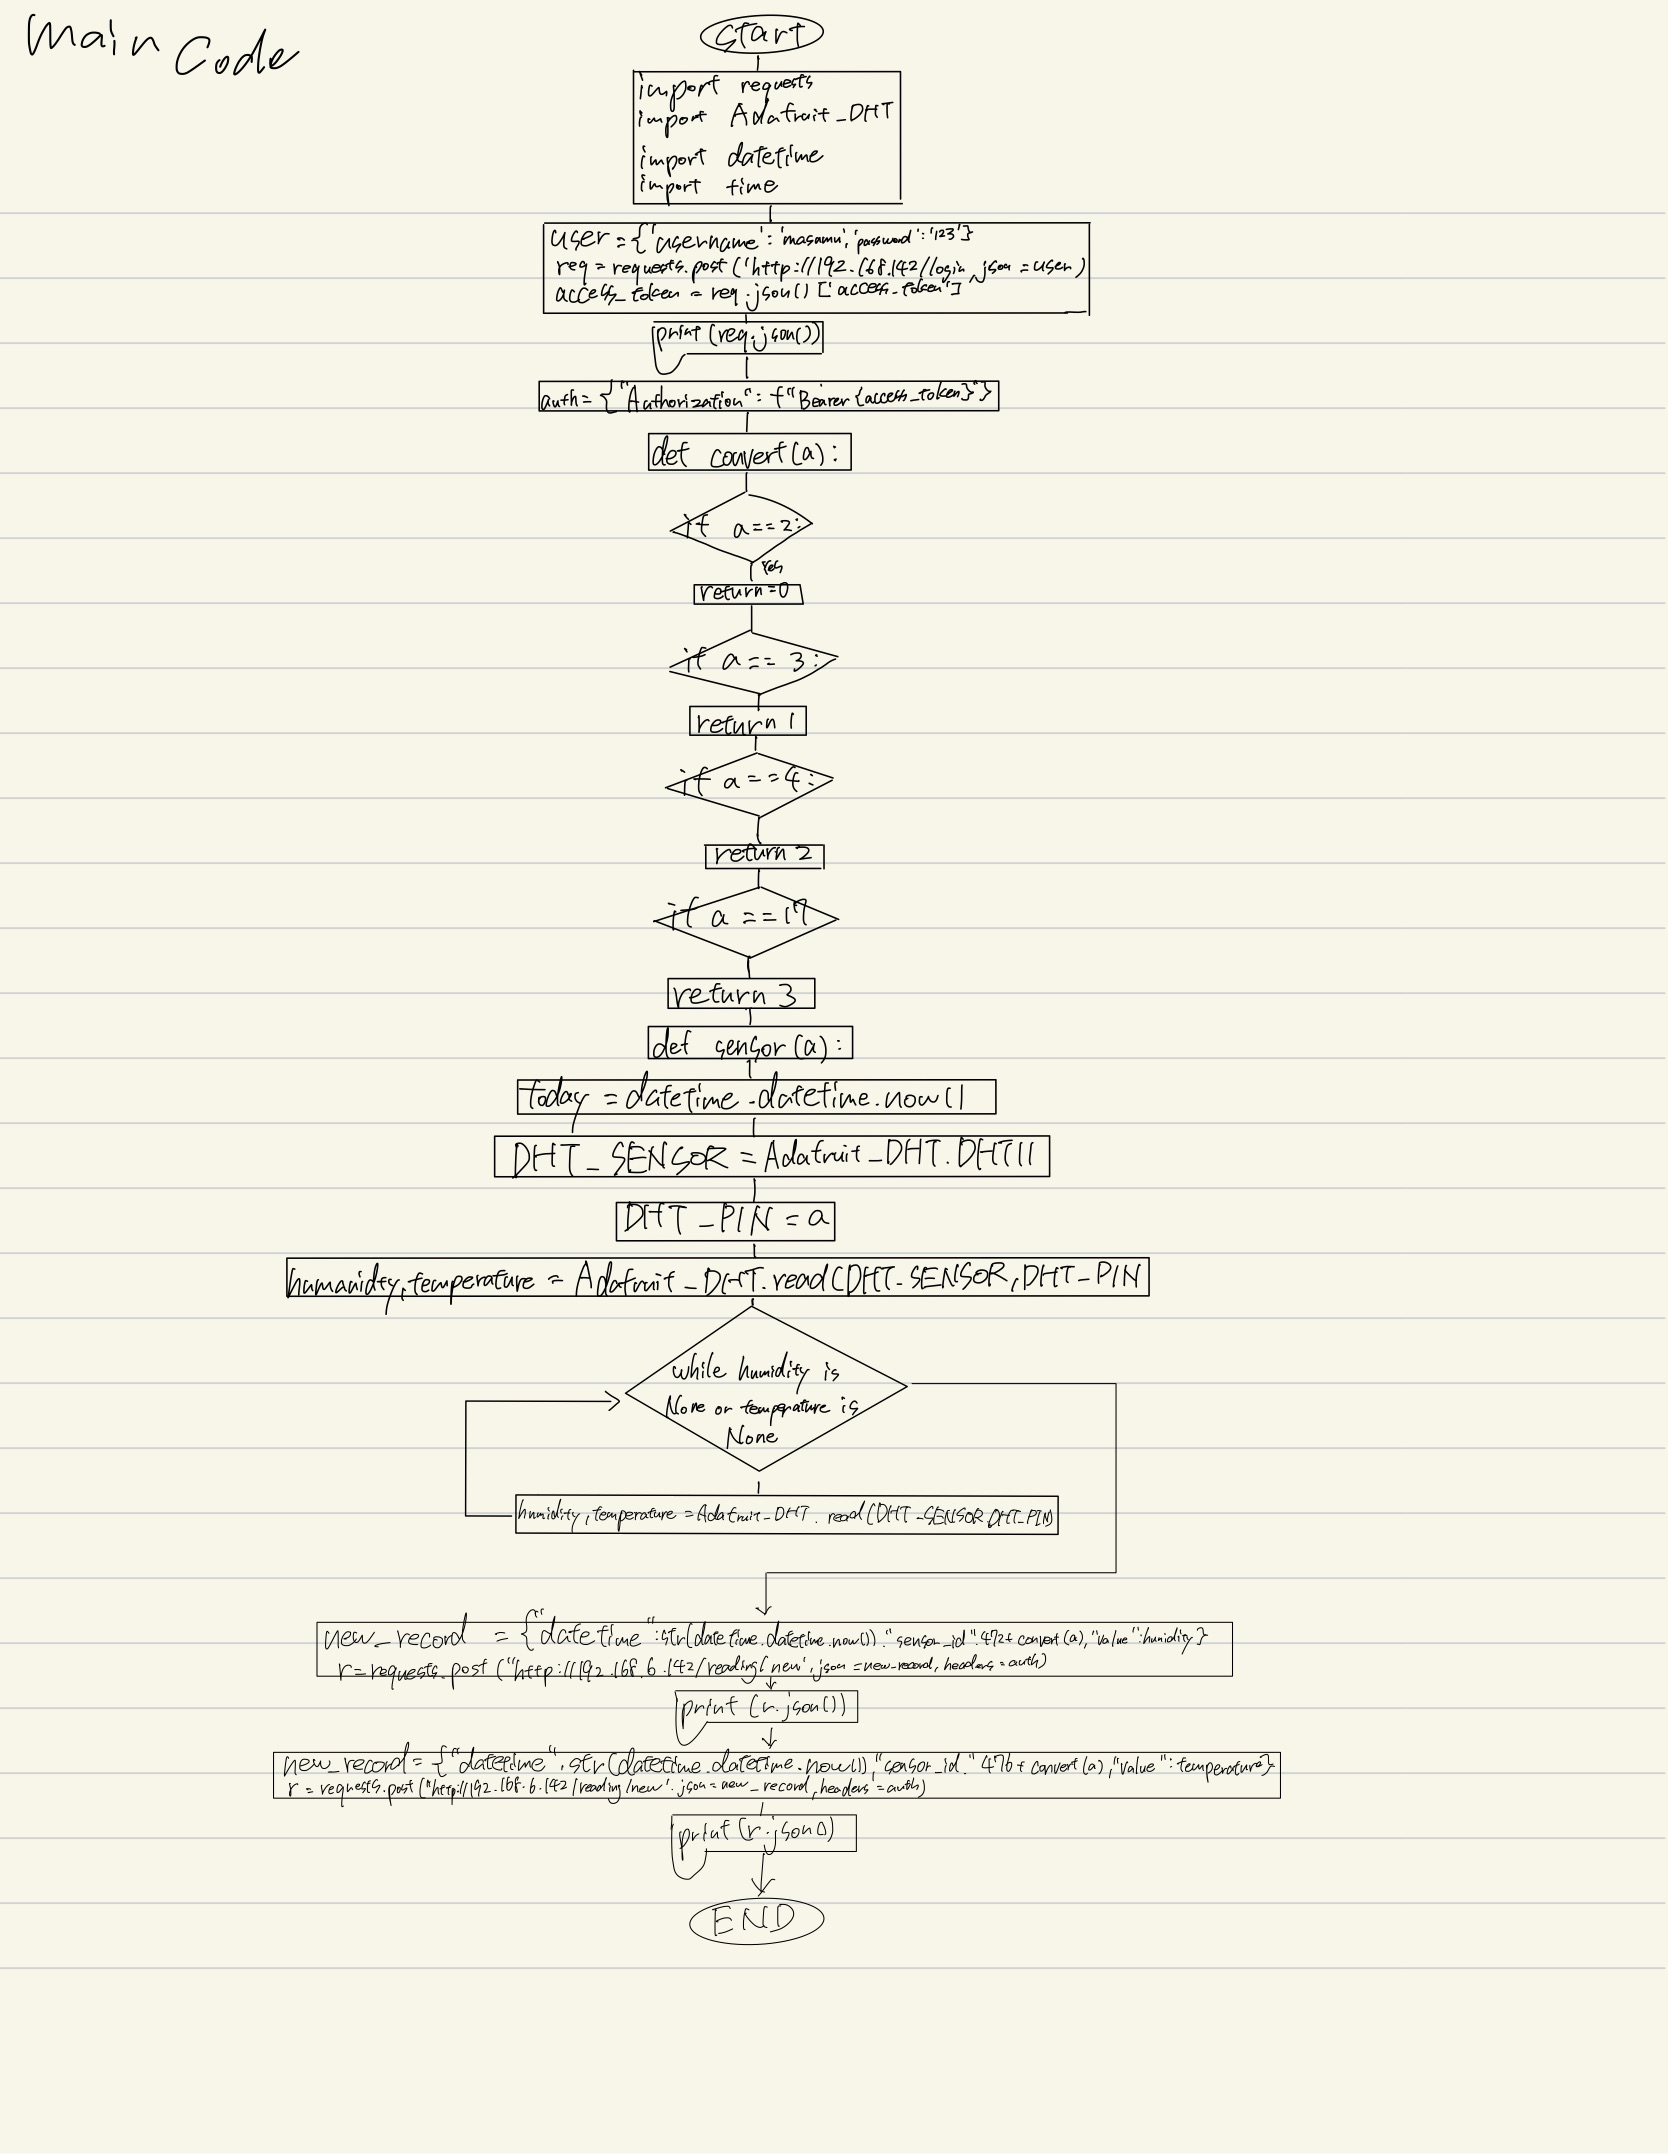 Main Code
Start
import requests
import Adafruit_DHT
import datetime
import time
user={'username':'masamu','password':'123'}
req=requests.post('http://192.168.142//login,json=user)
access_token = req.json()['access_token']
print(req.json())
auth={"Authorization": f"Bearer {access_token}"}
def convert(a):
if a==2:
Yes
return=0
if a== 3:
return 1
if a==4:
return 2
if a ==17
return 3
def sensor(a):
today =datetime.datetime.now()
DHT_SENSOR = Adafruit_DHT.DHT11
DHT_PIN = a
humanidty,temperature = Adafruit_DHT.read(DHT_SENSOR,DHT_PIN
while humidity is
None or temperature is
None
humidity,temperature=Adafruit_DHT.read(DHT_SENSOR,DHT_PIN)
new_record = {"datetime":str(datetime.datetime.now())."sensor_id".472+convert(a),"value":humidity}
r=requests.post("http://192.168.6.142/reading/new',json=new_record,headers=auth)
print(r.json())
new_record={"datetime".str(datetime.datetime.now()),"sensor_id."476+convert(a),"value":temperature}
r=requests.post("http://192.168.6.142/reading/new'.json=new_record,headers=auth)
print(r.json()
END